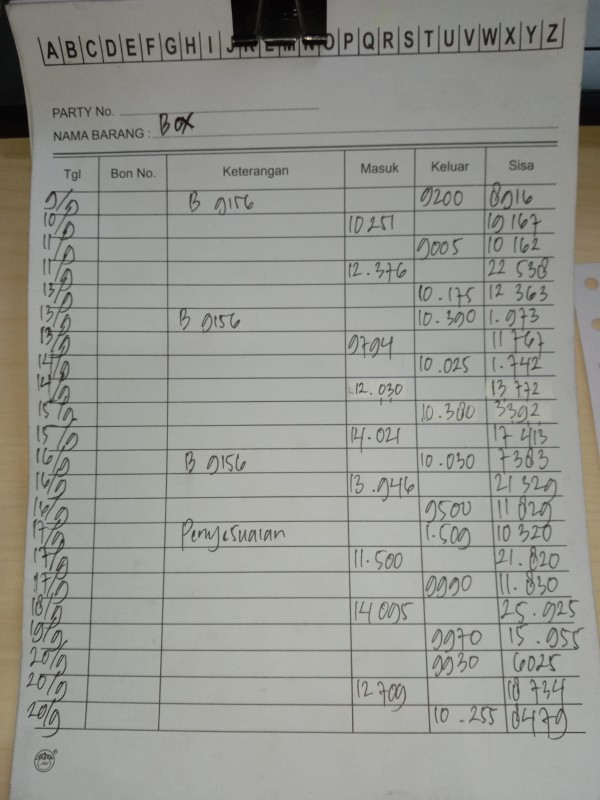 A B C D E F G H I J K L M N O P Q R S T U V W X Y Z
PARTY No.
NAMA BARANG : BOX
Tgl Bon No. Keterangan Masuk Keluar Sisa
9/9 B 9156 9200 8916
10/9 10251 19167
11/9 9005 10 162
11/9 12.376 22 538
13/9 10.175 12 363
13/9 B 9156 10.390 1.973
13/9 9794 11 767
14/9 10.025 1.742
14/9 12.030 13 772
15/9 10.380 3392
15/9 14.021 17 413
16/9 B 9156 10.030 7383
16/9 13.946 21 329
16/9 9500 11 829
17/9 Penyesuaian 1.509 10 320
17/9 11.500 21.820
17/9 9990 11.830
18/9 14 095 25.925
19/9 9970 15.955
20/9 9930 6025
20/9 12 709 18 734
20/9 10.255 8479